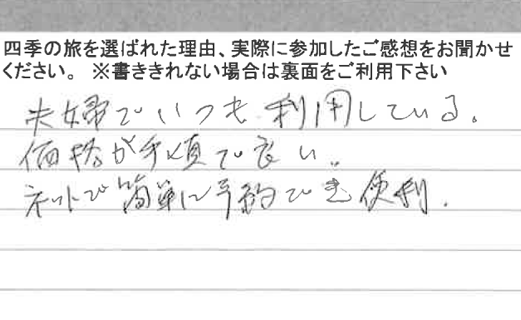 四季の旅を選ばれた理由、実際に参加したご感想をお聞かせ
ください。 ※書ききれない場合は裏面をご利用下さい
夫婦でいつも利用している。
価格が手頃で良い。
ネットで簡単に予約でき便利.